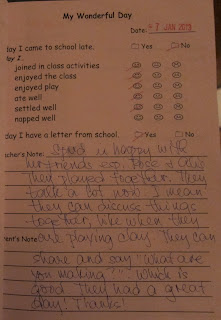 My Wonderful Day
Date: 7 JAN 2013
day I came to school late. Yes No
by I.
joined in class activities
enjoyed the class
enjoyed play
ate well
settled well
napped well
day I have a letter from school. Yes No
acher's Note: is happy with
her friends esp. &
They played together. They
talk a lot now. I mean
they can discuss things
together, like when they
ent's Note are playing clay. They can
share and say "what are
you making?". Which is
good. They had a great
day! Thanks!